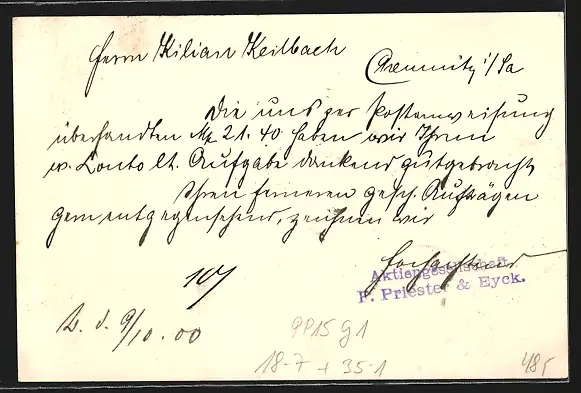 Herrn Kilian Keilbach
Chemnitz i/Sa
Die uns per Postanweisung
überhandten Mk 21.40 haben wir Ihrem
w. Conto lt. Aufgabe dankend gutgebracht
Ihren ferneren gesch. Aufträgen
gern entgegensehend, zeichnen wir
Hochachtend
Aktiengesellschaft
F. Priester & Eyck.
L. d. 9/10.00
PP15 g1
18-7 + 35-1